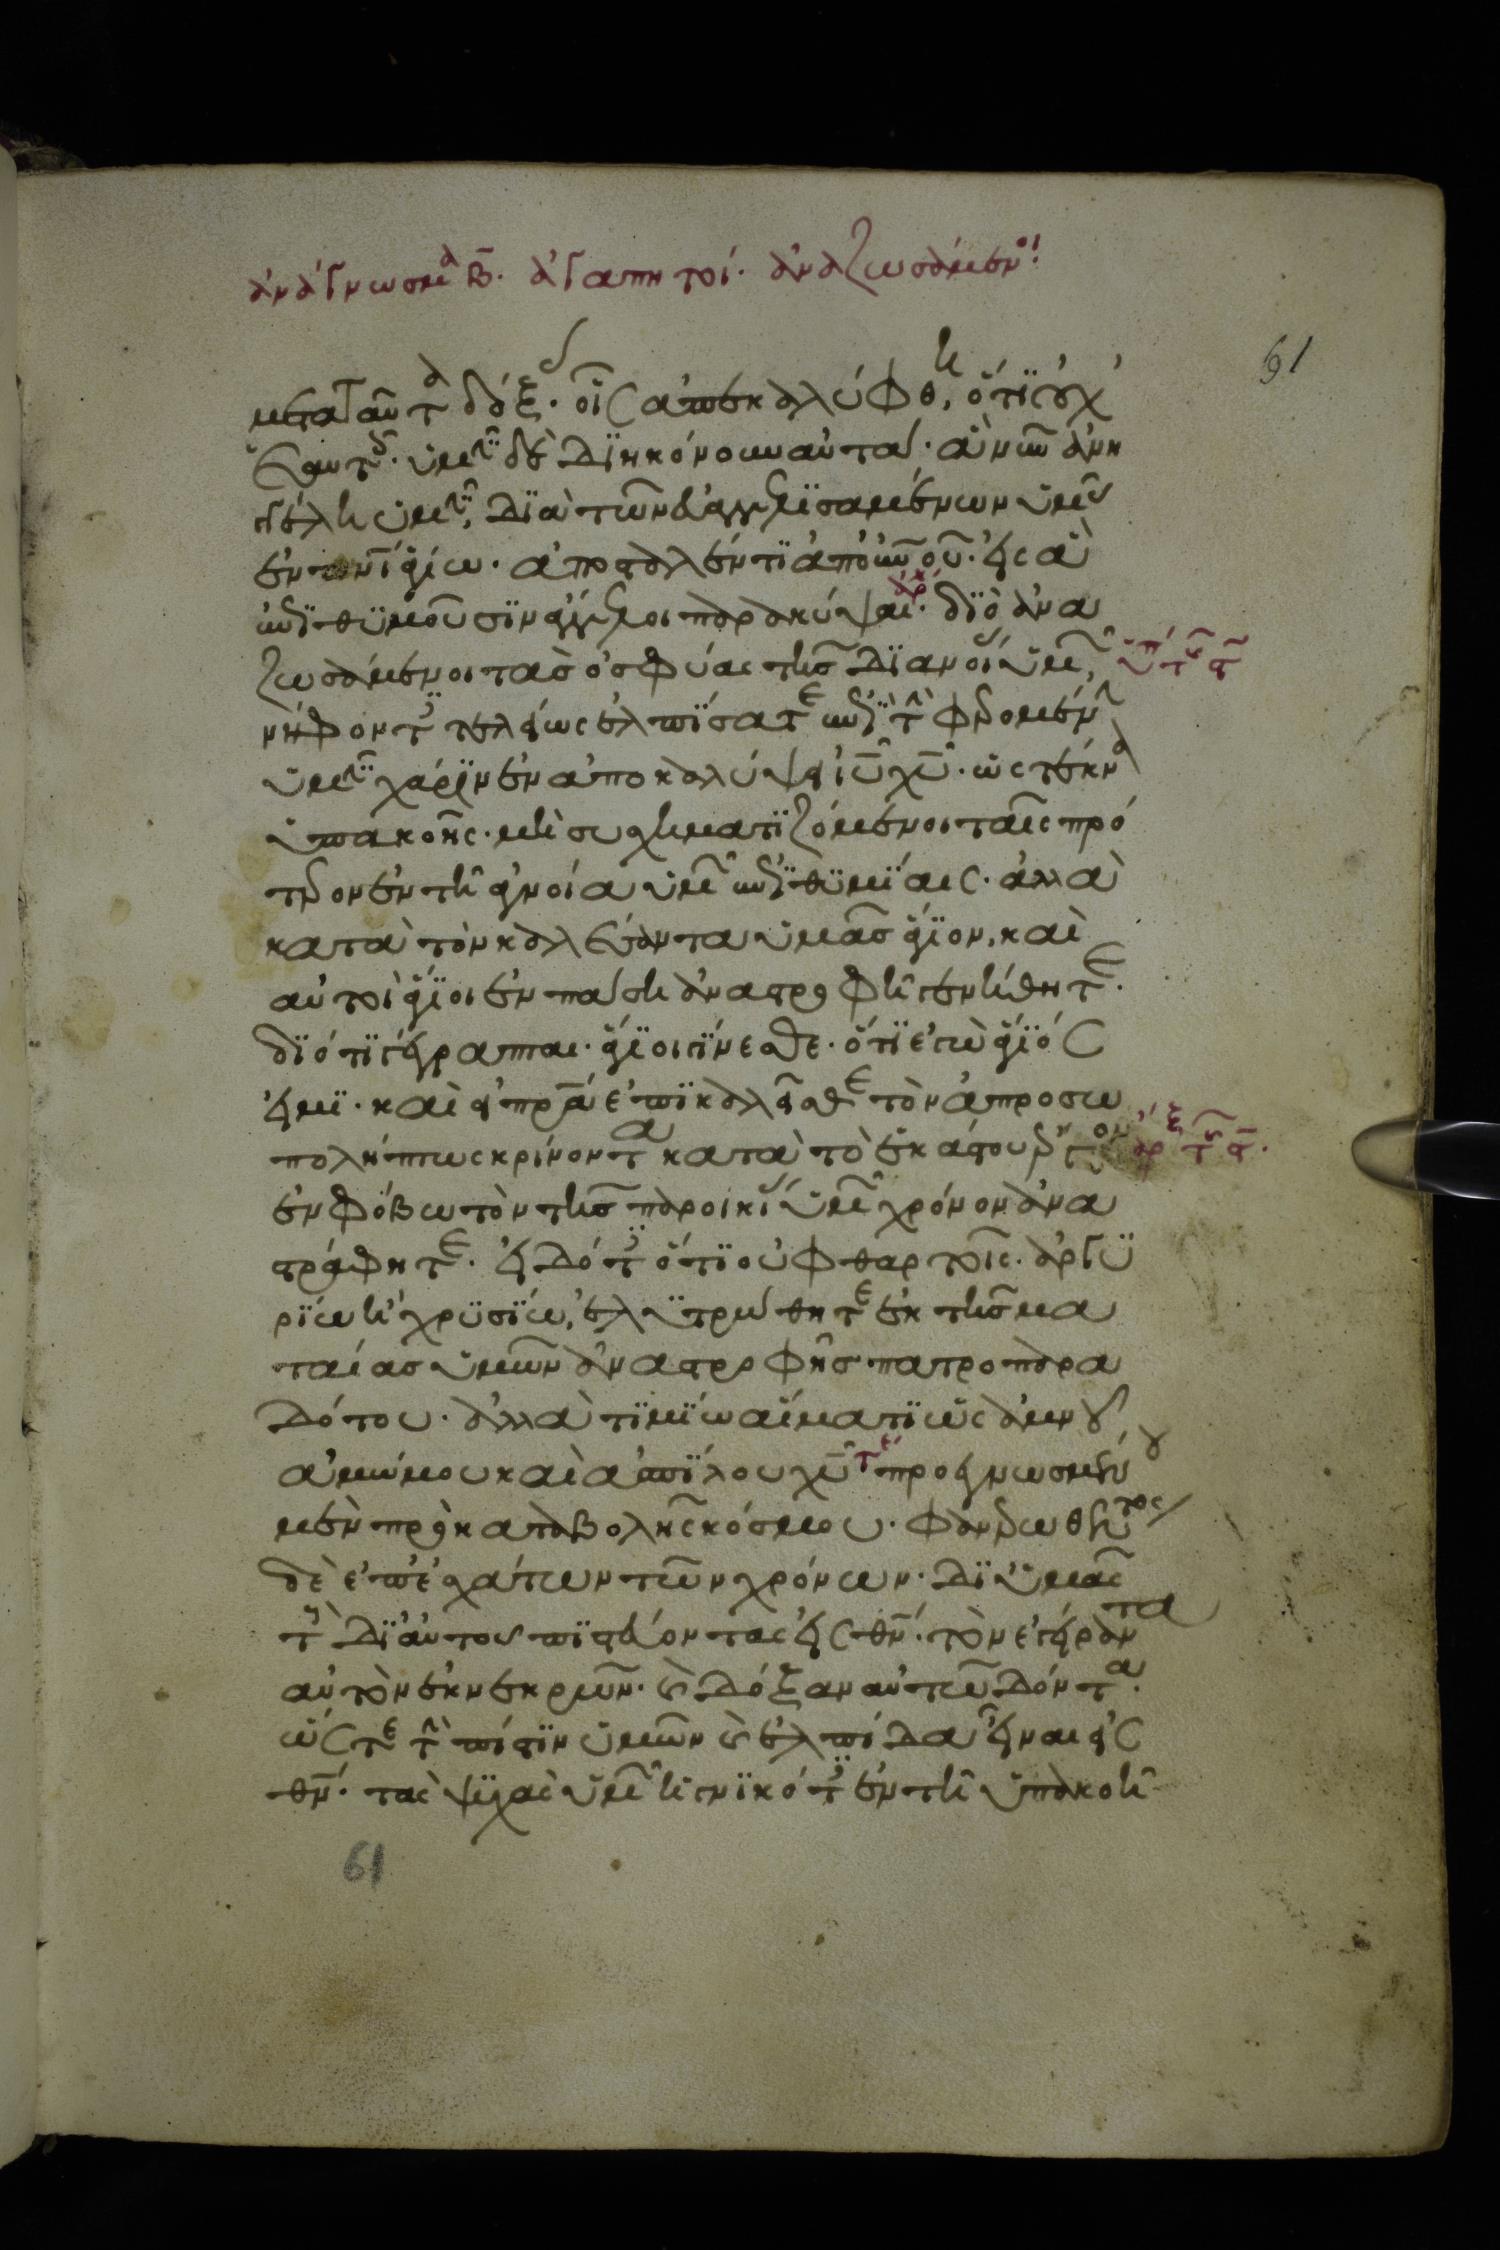 ἀνάγνωσμα β. ἀγαπητοί. ἀναζωσάμενοι
61
μετα ταῦτα δόξας. οἷς ἀπεκαλύφθη, ὅτι οὐχ
ἑαυτοῖς. ὑμῖν δὲ διηκόνουν αὐτά. ἃ νῦν ἀνη
γγέλη ὑμῖν, διὰ τῶν εὐαγγελισαμένων ὑμᾶς
ἐν πνι ἁγίω. ἀποσταλέντι ἀπ' οὐνου. εἰς ἃ
ἐπιθυμοῦσιν ἄγγελοι παρακύψαι. διὸ ἀνα
ζωσάμενοι τὰς ὀσφύας τῆς διανοίας ὑμῶν,
νήφοντες τελείως ἐλπίσατε ἐπὶ τὴν φερομένην
ὑμῖν χάριν ἐν ἀποκαλύψει ιυ χυ. ὡς τέκνα
ὑπακοῆς. μὴ συσχηματιζόμενοι ταῖς πρό
τερον ἐν τῆ ἀγνοία ὑμῶν ἐπιθυμίαις. ἀλλὰ
κατὰ τὸν καλέσαντα ὑμᾶς ἅγιον, καὶ
αὐτοὶ ἅγιοι ἐν πάση ἀναστροφῆ γενήθητε.
διότι γέγραπται. ἅγιοι γίνεσθε. ὅτι ἐγὼ ἅγιός
εἰμι. καὶ εἰ πρα ἐπικαλεῖσθε τὸν ἀπροσω
πολήπτως κρίνοντα κατὰ τὸ ἑκάστου ἔργον,
ἐν φόβω τὸν τῆς παροικίας ὑμῶν χρόνον ἀνα
στράφητε. εἰδότες ὅτι οὐ φθαρτοῖς. ἀργυ
ρίω ἢ χρυσίω, ἐλυτρώθητε ἐκ τῆς μα
ταίας ὑμῶν ἀναστροφῆς πατροπαρα
δότου. ἀλλὰ τιμίω αἵματι ὡς ἀμνοῦ
ἀμώμου καὶ ἀσπίλου χυ προεγνωσμένου
μὲν πρὸ καταβολῆς κόσμου. φανερωθέντος
δὲ ἐπ' ἐσχάτων τῶν χρόνων. δι' ὑμᾶς
τοὺς δι' αὐτοῦ πιστεύοντας εἰς θν. τὸν ἐγείραντα
αὐτὸν ἐκ νεκρῶν. καὶ δόξαν αὐτῶ δόντα.
ὥστε τὴν πίστιν ὑμῶν καὶ ἐλπίδα εἶναι εἰς
θν. τὰς ψυχὰς ὑμῶν ἡγνικότες ἐν τῆ ὑπακοῆ
61